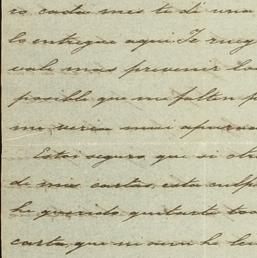 io cada mes te dí una
lo entregue aqui. Te rueg
vale mas prevenir los
posible que me falten p
me veria mui apurad
Estoi seguro que si otr
de mis cartas, esta culp
he querido quitarte tod
carta, que ni aun he le